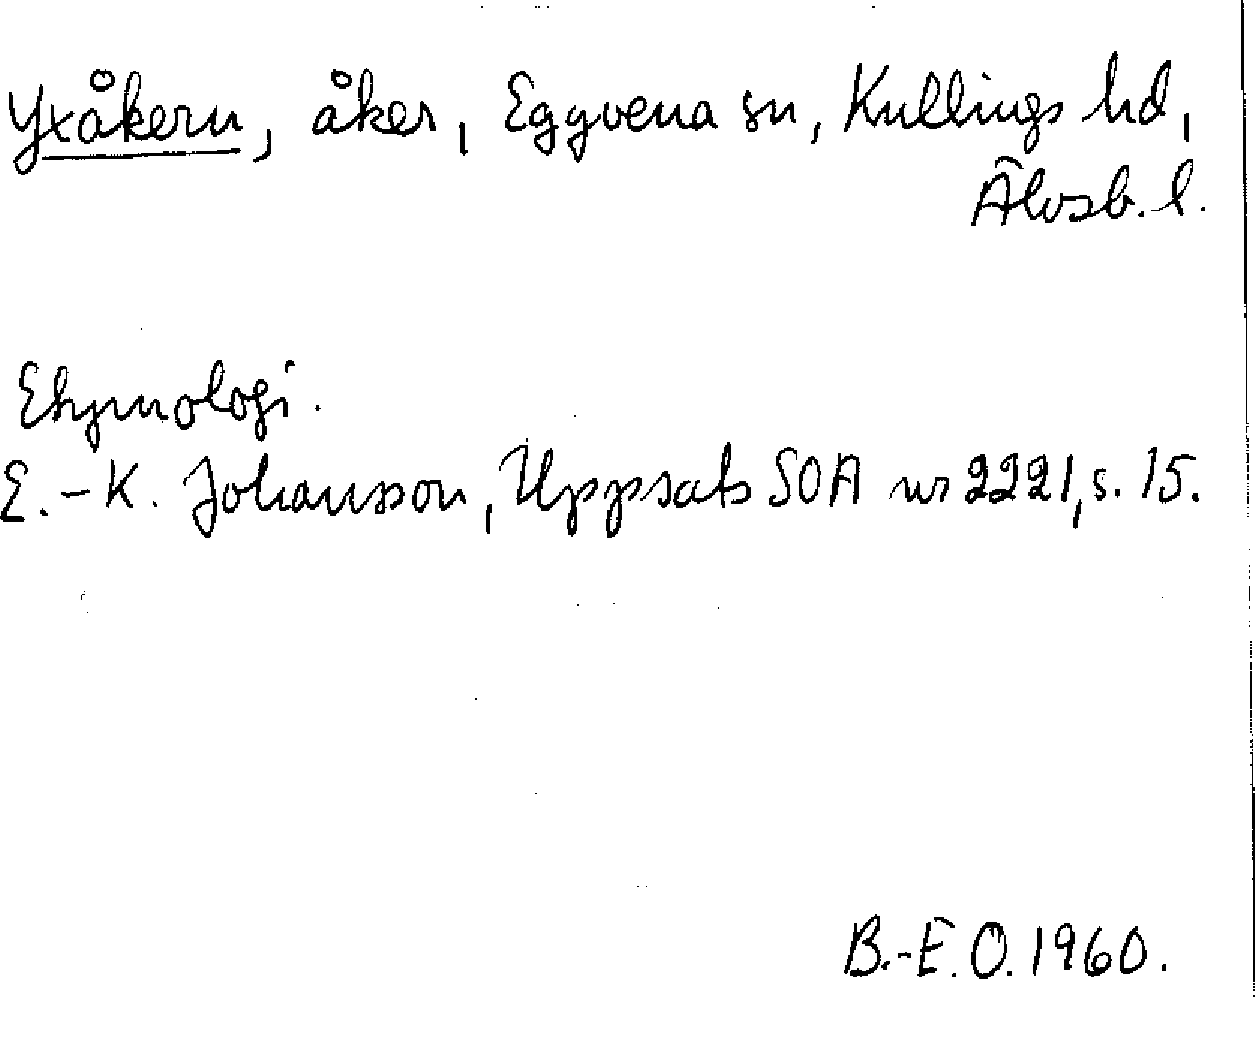 Yxåkern, åker, Eggvena sn, Kullings hd,
Älvsb. l.
Etymologi.
E.-K. Johansson, Uppsats SOA nr 2221, s. 15.
B.-E. O. 1960.